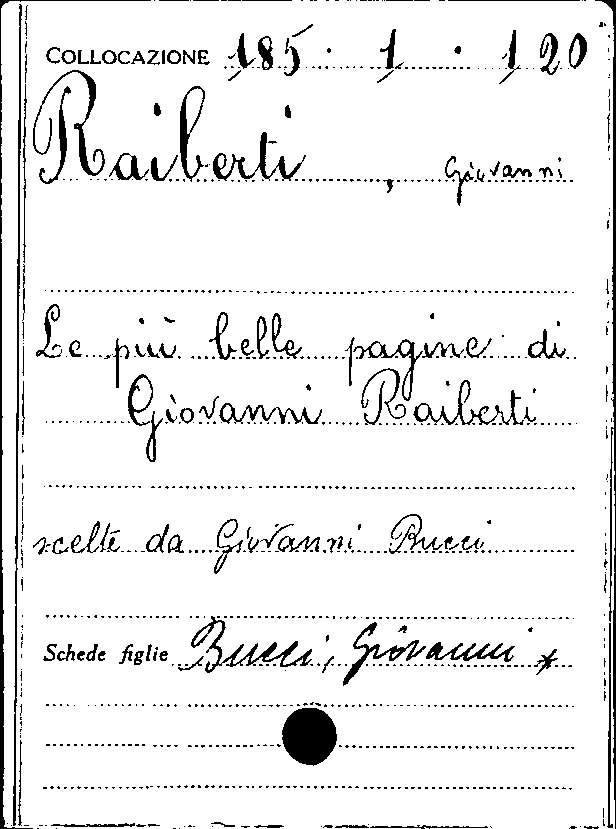 COLLOCAZIONE 185 · 1 · 120
Raiberti, Giovanni
Le più belle pagine di
Giovanni Raiberti
scelte da Giovanni Bucci
Schede figlie Bucci, Giovanni *